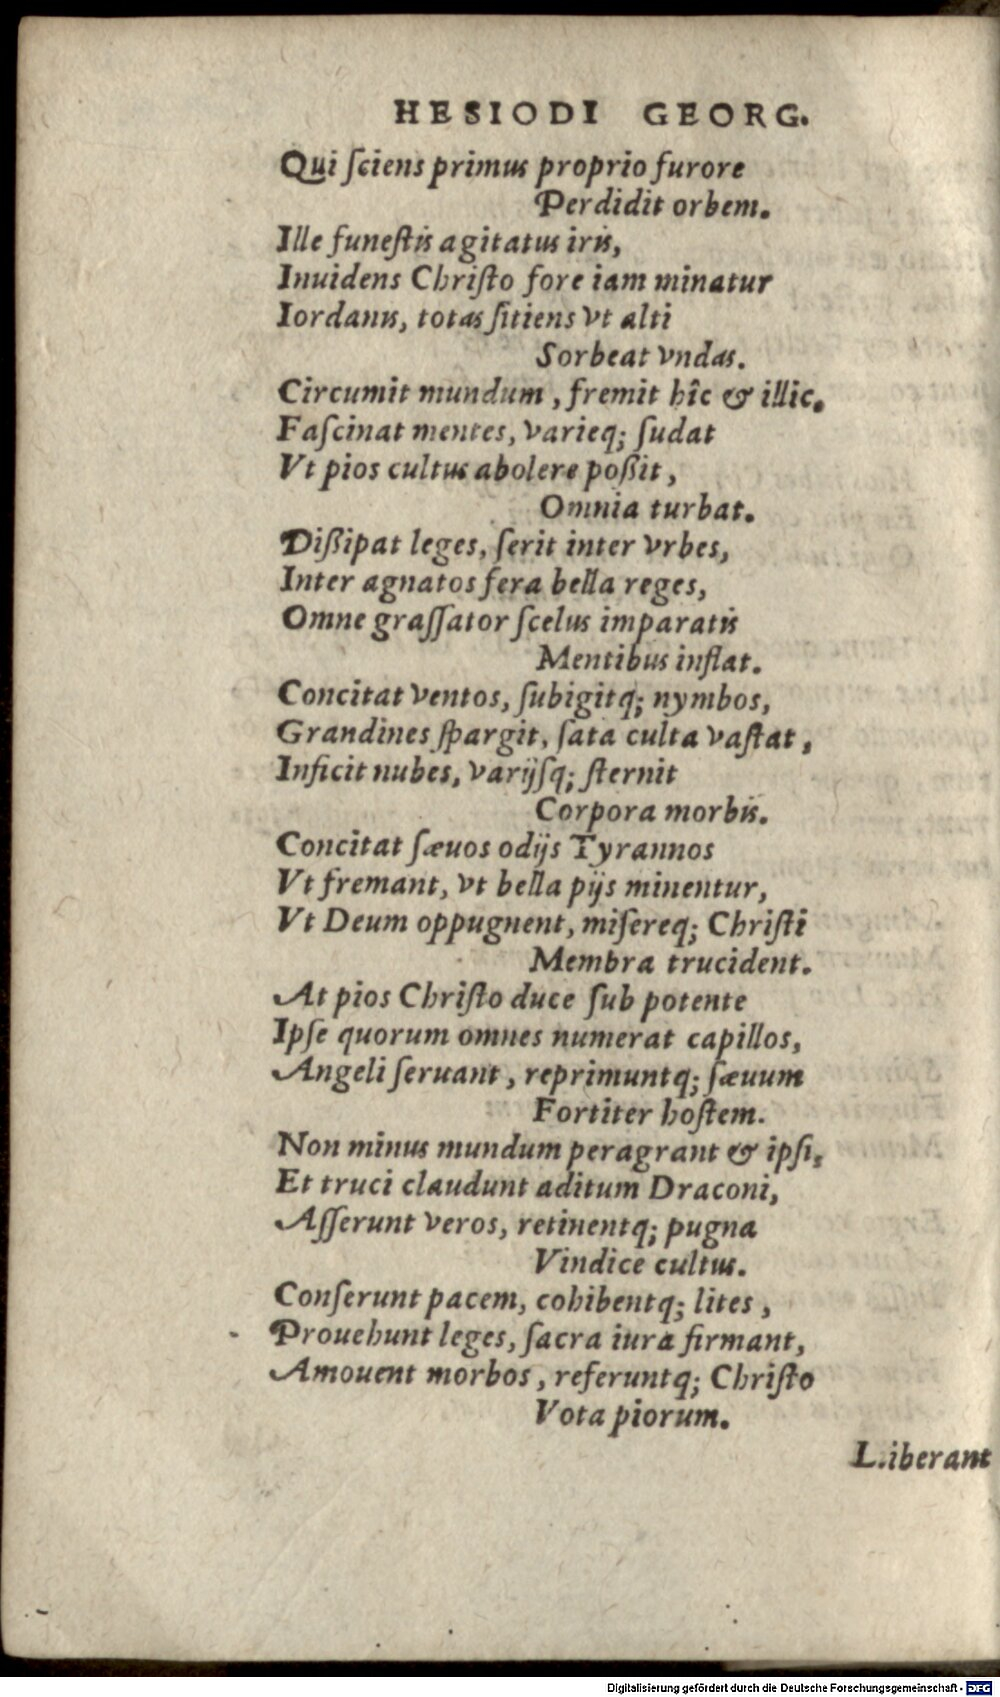 HESIODI GEORG.
Qui ſciens primus proprio furore
Perdidit orbem.
Ille funeſtis agitatus iris,
Inuidens Chriſto fore iam minatur
Iordanis, totas ſitiens vt alti
Sorbeat vndas.
Circumit mundum, fremit hîc & illic.
Faſcinat mentes, varieq; ſudat
Vt pios cultus abolere poßit,
Omnia turbat.
Dißipat leges, ſerit inter vrbes,
Inter agnatos fera bella reges,
Omne graſſator ſcelus imparatis
Mentibus inflat.
Concitat ventos, ſubigitq; nymbos,
Grandines ſpargit, ſata culta vaſtat,
Inficit nubes, varijſq; ſternit
Corpora morbis.
Concitat ſæuos odijs Tyrannos
Vt fremant, vt bella pijs minentur,
Vt Deum oppugnent, miſereq; Chriſti
Membra trucident.
At pios Chriſto duce ſub potente
Ipſe quorum omnes numerat capillos,
Angeli ſeruant, reprimuntq; ſæuum
Fortiter hoſtem.
Non minus mundum peragrant & ipſi,
Et truci claudunt aditum Draconi,
Aſſerunt veros, retinentq; pugna
Vindice cultus.
Conſerunt pacem, cohibentq; lites,
Prouehunt leges, ſacra iura firmant,
Amouent morbos, referuntq; Chriſto
Vota piorum.
Liberant
Digitalisierung gefördert durch die Deutsche Forschungsgemeinschaft - DFG